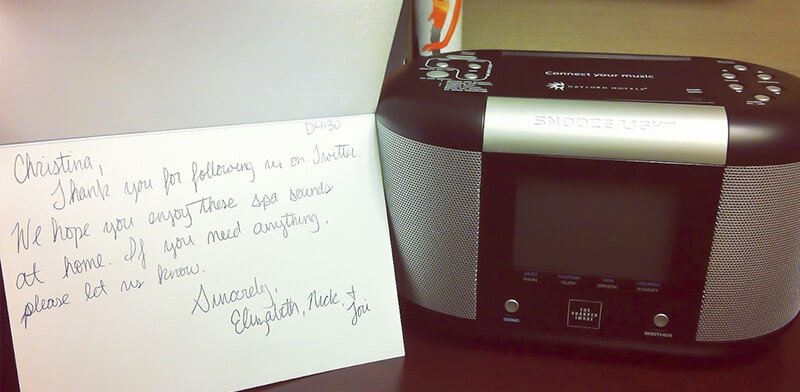 D4130
Christina,
Thank you for following us on Twitter.
We hope you enjoy these spa sounds
at home. If you need anything,
please let us know.
Sincerely,
Elizabeth, Nick, +
Lori
Connect your music
GAYLORD HOTELS
SNOOZE/LIGHT
JAZZ
RAIN
SURF
SPA
BROOK
AVIARY
SONG
THE
SHARPER
IMAGE
SOOTHER